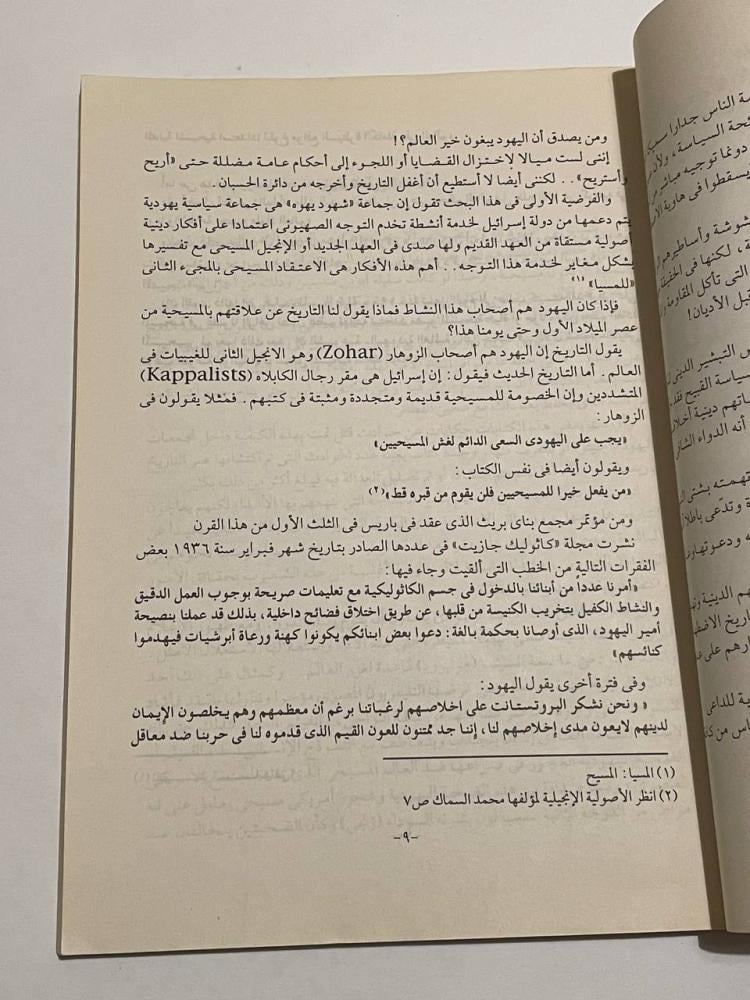 ومن يصدق أن اليهود يبغون خير العالم؟!
إننى لست ميالا لإختزال القضايا أو اللجوء إلى أحكام عامة مضللة حتى «أريح
وأستريح» . . لكننى أيضا لا أستطيع أن أغفل التاريخ وأخرجه من دائرة الحسبان .
والفرضية الأولى فى هذا البحث تقول إن جماعة «شهود يهوه» هى جماعة سياسية يهودية
يتم دعمها من دولة إسرائيل لخدمة أنشطة تخدم التوجه الصهيونى اعتمادا على أفكار دينية
أصولية مستقاة من العهد القديم ولها صدى فى العهد الجديد أو الإنجيل المسيحى مع تفسيرها
بشكل مغاير لخدمة هذا التوجه . . أهم هذه الأفكار هى الاعتقاد المسيحى بالمجىء الثانى
«للمسيا» (١)
فإذا كان اليهود هم أصحاب هذا النشاط فماذا يقول لنا التاريخ عن علاقتهم بالمسيحية من
عصر الميلاد الأول وحتى يومنا هذا؟
يقول التاريخ إن اليهود هم أصحاب الزوهار (Zohar) وهو الانجيل الثانى للغيبيات فى
العالم . أما التاريخ الحديث فيقول : إن إسرائيل هى مقر رجال الكابلاه (Kappalists)
المتشددين وإن الخصومة للمسيحية قديمة ومتجددة ومثبتة فى كتبهم . فمثلا يقولون فى
الزوهار :
«يجب على اليهودى السعى الدائم لغش المسيحيين»
ويقولون أيضا فى نفس الكتاب :
«من يفعل خيرا للمسيحيين فلن يقوم من قبره قط» (٢)
ومن مؤتمر مجمع بناى بريث الذى عقد فى باريس فى الثلث الأول من هذا القرن
نشرت مجلة «كاثوليك جازيت» فى عددها الصادر بتاريخ شهر فبراير سنة ١٩٣٦ بعض
الفقرات التالية من الخطب التى ألقيت وجاء فيها :
«أمرنا عدداً من أبنائنا بالدخول فى جسم الكاثوليكية مع تعليمات صريحة بوجوب العمل الدقيق
والنشاط الكفيل بتخريب الكنيسة من قلبها، عن طريق اختلاق فضائح داخلية، بذلك قد عملنا بنصيحة
أمير اليهود، الذى أوصانا بحكمة بالغة: دعوا بعض ابنائكم يكونوا كهنة ورعاة أبرشيات فيهدموا
كنائسهم»
وفى فترة أخرى يقول اليهود :
« ونحن نشكر البروتستانت على اخلاصهم لرغباتنا برغم أن معظمهم وهم يخلصون الإيمان
لدينهم لايعون مدى إخلاصهم لنا، إننا جد ممتنون للعون القيم الذى قدموه لنا فى حربنا ضد معاقل
(١) المسيا : المسيح
(٢) انظر الأصولية الإنجيلية لمؤلفها محمد السماك ص٧
-٩-